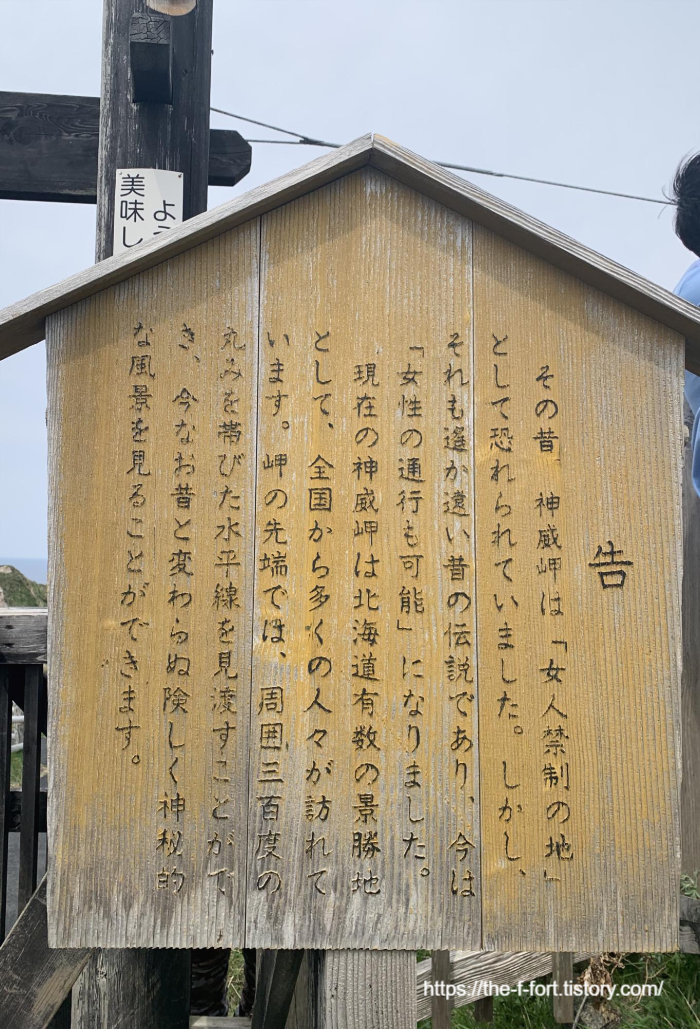 告
その昔、神威岬は「女人禁制の地」
として恐れられていました。しかし、
それも遙か遠い昔の伝説であり、今は
「女性の通行も可能」になりました。
現在の神威岬は北海道有数の景勝地
として、全国から多くの人々が訪れて
います。岬の先端では、周囲三百度の
丸みを帯びた水平線を見渡すことがで
き、今なお昔と変わらぬ険しく神秘的
な風景を見ることができます。
よう
美味し
https://the-f-fort.tistory.com/